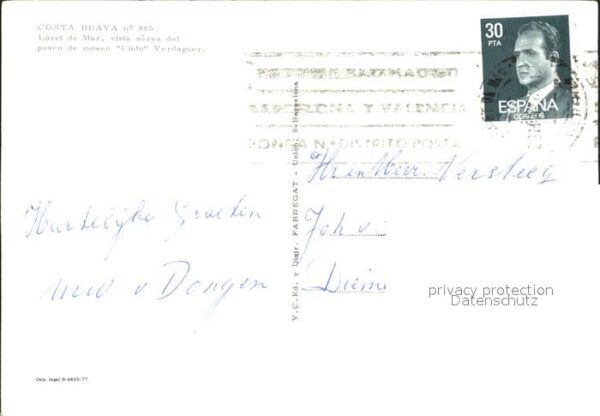 COSTA BRAVA nº 865
Loret de Mar, vista aérea del
paseo de mosen "Cinto" Verdaguer.
30
PTA
ESPAÑA
CORREOS
BARCELONA Y VALENCIA
PONGA Nº DISTRITO POSTAL
V.C. Ed. y Distr. FABREGAT - Unión, 9-Barcelona
Hartelijke Groeten
mevr v Dongen
Versteeg
Joh v
privacy protection
Datenschutz
Dep. legal B-6855/77